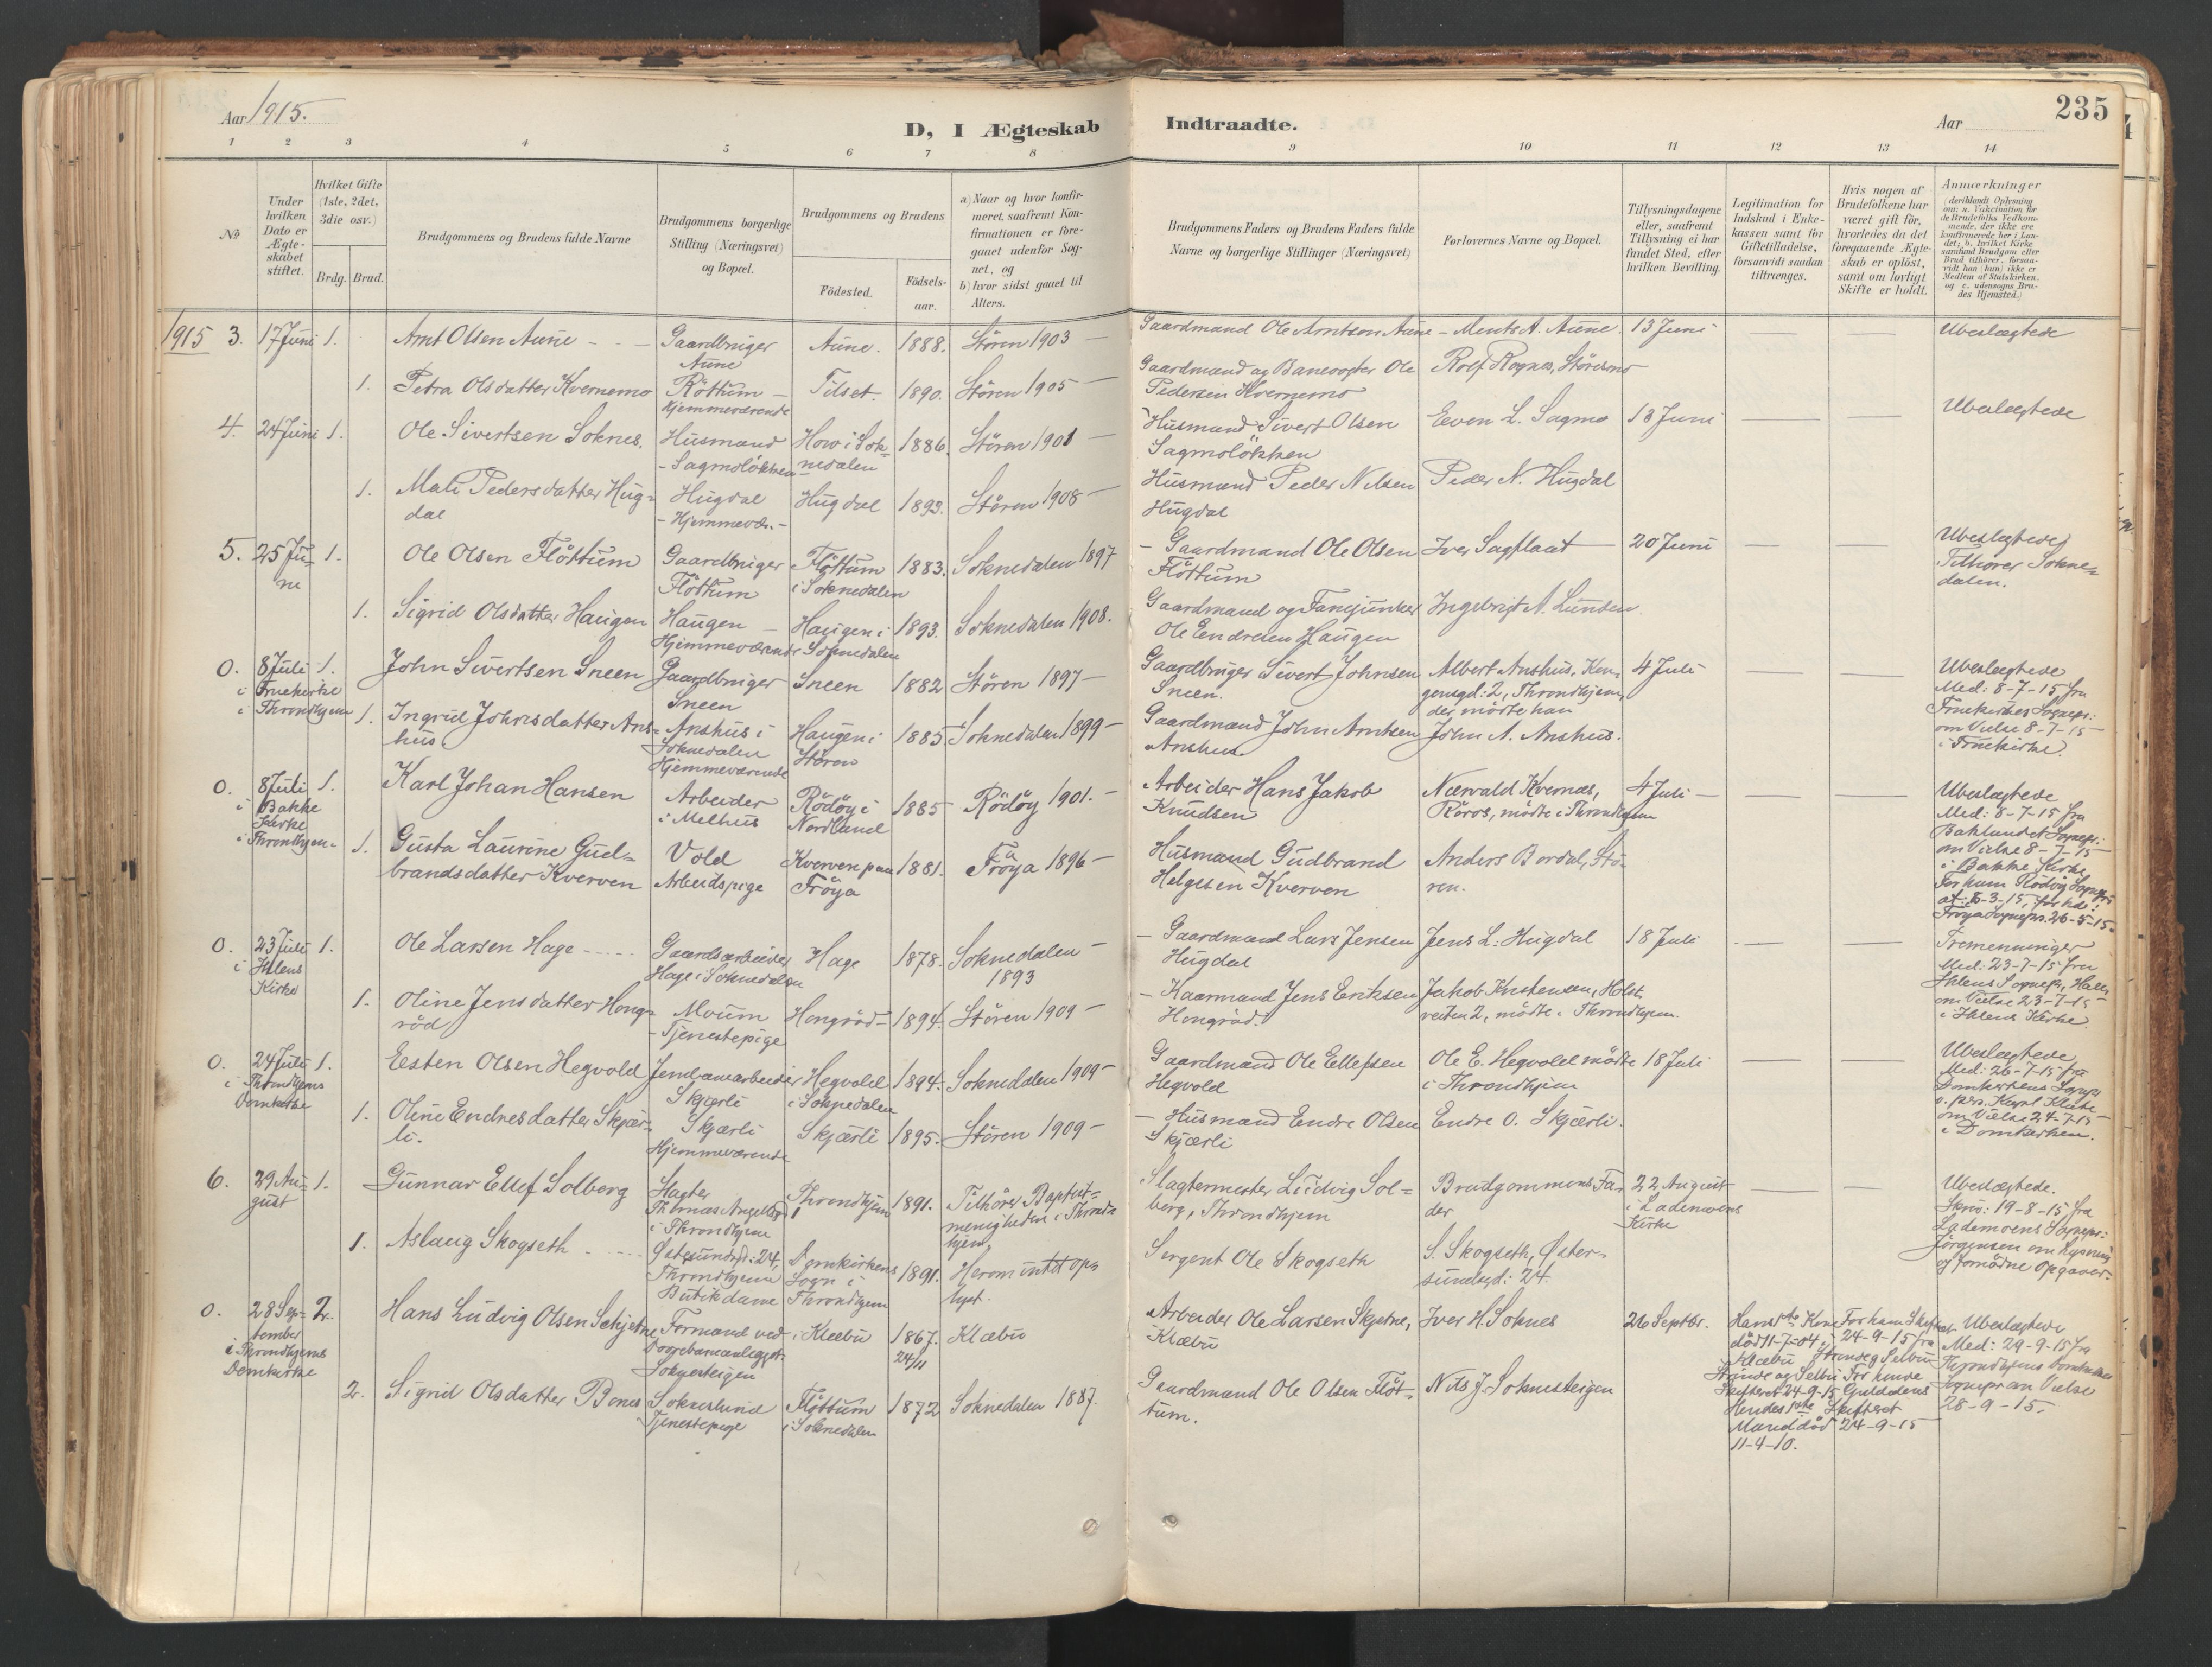 Aar 1915.
D, I Ægteskab Indtraadte.
Aar
235
1 2 3 4 5 6 7 8 9 10 11 12 13 14
No
Under hvilken Dato er Ægteskabet stiftet.
Hvilket Gifte (1ste, 2det, 3die osv.)
Brdg. Brud.
Brudgommens og Brudens fulde Navne
Brudgommens borgerlige Stilling (Næringsvei) og Bopæl.
Brudgommens og Brudens
Födested.
Födselsaar.
a) Naar og hvor konfirmeret, saafremt Konfirmationen er foregaaet udenfor Sognet, og
b) hvor sidst gaaet til Alters.
Brudgommens Faders og Brudens Faders fulde Navne og borgerlige Stillinger (Næringsvei)
Forlovernes Navne og Bopæl.
Tillysningsdagene eller, saafremt Tillysning ei har fundet Sted, efter hvilken Bevilling.
Legitimation for Indskud i Enkekassen samt for Giftetilladelse, forsaavidt saadan tiltrænges.
Hvis nogen af Brudefolkene har været gift för, hvorledes da det foregaaende Ægteskab er oplöst, samt om lovligt Skifte er holdt.
Anmærkninger (deriblandt Oplysning om: a. Vakcination for de Brudefolks Vedkommende, der ikke ere konfirmerede her i Landet; b. hvilket Kirkesamfund Brudgom eller Brud tilhörer, forsaavidt han (hun) ikke er Medlem af Statskirken. og c. udensogns Brudes Hjemsted.)
1915 3. 17 Juni 1. Arnt Olsen Aune - - - Gaardbruger Aune Aune. 1888. Stören 1903 - Gaardmand Ole Arntsen Aune - Ments A. Aune. 13 Juni Ubeslægtede
1. Petra Olsdatter Kvernemo Röttum - Hjemmeværende Tilset. 1890. Stören 1905 - Gaardmand og Banevogter Ole Pedersen Kvernemo Rolf Rognes, Störenmo
4. 24 Juni 1. Ole Sivertsen Soknes. Husmand - Sagmolökken How i Soknedalen 1886. Stören 1901 - Husmand Sivert Olsen Sagmolökken Even L. Sagmo 13 Juni Ubeslægtede
1. Mali Pedersdatter Hugdal Hugdal - Hjemmevær. - Hugdal 1893. Stören 1908 - Husmand Peder Nilsen Hugdal Peder N. Hugdal
5. 25 Juni 1. Ole Olsen Flöttum Gaardbruger Flöttum Flöttum i Soknedalen 1883. Soknedalen 1897 - Gaardmand Ole Olsen Flöttum Iver Sagflaat 20 Juni Ubeslægtede Tilhörer Soknedalen.
1. Sigrid Olsdatter Haugen Haugen - Hjemmeværende Haugen i Soknedalen 1893. Soknedalen 1908. Gaardmand og Fanejunker Ole Endresen Haugen Ingebrigt A. Lunden.
0. 8 Juli i Fruekirke i Throndhjem 1. John Sivertsen Sneen Gaardbruger Sneen Sneen 1882 Stören 1897 - Gaardbruger Sivert Johnsen Sneen. Albert Anshus, Kongensgd: 2, Throndhjem, der mödte han 4 Juli Ubeslægtede Med: 8-7-15 fra Fruekirkes Sognepr: om Vielse 8-7-15 i Fruekirke.
1. Ingrid Johnsdatter Anshus Anshus i Soknedalen Hjemmeværende Haugen i Stören 1885 Soknedalen 1899 - Gaardmand John Arntsen Anshus John A. Anshus.
0. 8 Juli i Bakke Kirke i Throndhjem 1. Karl Johan Hansen Arbeider i Melhus Rödöy i Nordland 1885 Rödöy 1901. - Arbeider Hans Jakob Knudsen Nærvald Kvernæs, Röros, mödte i Throndhjem 4 Juli - Ubeslægtede Med: 8-7-15 fra Baklandet Sognepr: om Vielse 8-7-15 i Bakke Kirke For ham Rödöy Sognepr. at: 6-3-15, for hde: Fröya Sognepr. 26-5-15.
1. Gusta Laurine Gudbrandsdatter Kverven Vold Arbeidspige Kverven paa Fröya 1881. Fröya 1896 - Husmand Gudbrand Helgesen Kverven Anders Bordal, Stören.
0. 23 Juli i Ihlens Kirke 1. Ole Larsen Hage - - - Gaardsarbeider Hage i Soknedalen Hage 1878. Soknedalen 1893 - Gaardmand Lars Jensen Hugdal Jens L. Hugdal 18 Juli Tremenninger Med: 23-7-15 fra Ihlens Sognepr. om Vielse 23-7-15 i Ihlens Kirke
1. Oline Jensdatter Hongröd Moum - Tjenestepige Hongröd 1894. Stören 1909 - Kaarmand Jens Eriksen Hongröd. Jakob Kristensen, Holstveiten 2, mödte i Throndhjem.
0. 24 Juli i Throndhjems Domkirke 1. Eesten Olsen Hegvold Jernbanearbeider Skjærli Hegvold i Soknedalen 1894. Soknedalen 1909 - Gaardmand Ole Ellefsen Hegvold Ole E. Hegvold mödte i Throndhjem 18 Juli Ubeslægtede Med: 26-7-15 fra Domkirkens Sognepr v. pers. Kapl. om Vielse 24-7-15 i Domkirken.
1. Oline Endresdatter Skjærli. Skjærli Hjemmeværende Skjærli 1895. Stören 1909 - Husmand Endre Olsen Skjærli Endre O. Skjærli.
6. 29 August 1. Gunnar Ellef Solberg Slagter Thomas Angells i Throndhjem Throndhjem 1891. Tilhörer Baptistmenigheden i Throndhjem Slagtermester Ludvig Solberg, Throndhjem Brudgommens Fader 22 August i Lademoens Kirke Ubeslægtede. Skriv: 19-8-15 fra Lademoens Sognepr: Jörgensen om Lysning og fornödne Opgaver.
1. Aslaug Skogseth - - - Østersundsgt: 24, Throndhjem Butikdame Domkirkens Sogn i Throndhjem 1891. Herom intet oplyst. Sergent Ole Skogseth S. Skogseth, Østersundsgd: 24.
0. 28 September i Throndhjems Domkirke 2. Hans Ludvig Olsen Schjetne Formand ved Dovrebaneanlegget Soknesteigen i Klæbu 1867. 24/11 Klæbu Arbeider Ole Larsen Skjetne, Klæbu Iver H. Soknes 26 Septbr. Hans 1ste Kone död 11-7-04 i Klæbu Strinde og Selbu Skifteret 24-9-15 Hendes 1ste Mand död 11-4-10. For ham Skifteat 24-9-15 fra Strinde og Selbu For hende Guldalens Skifteret 24-9-15 Ubeslægtede Med: 29-9-15 fra Throndhjems Domkirkes Sognepr. an Vielse 28-9-15.
2. Sigrid Olsdatter Bones Soknelund Tjenestepige Flöttum i Soknedalen 1872 Soknedalen 1887. Gaardmand Ole Olsen Flöttum. Nils J. Soknesteigen